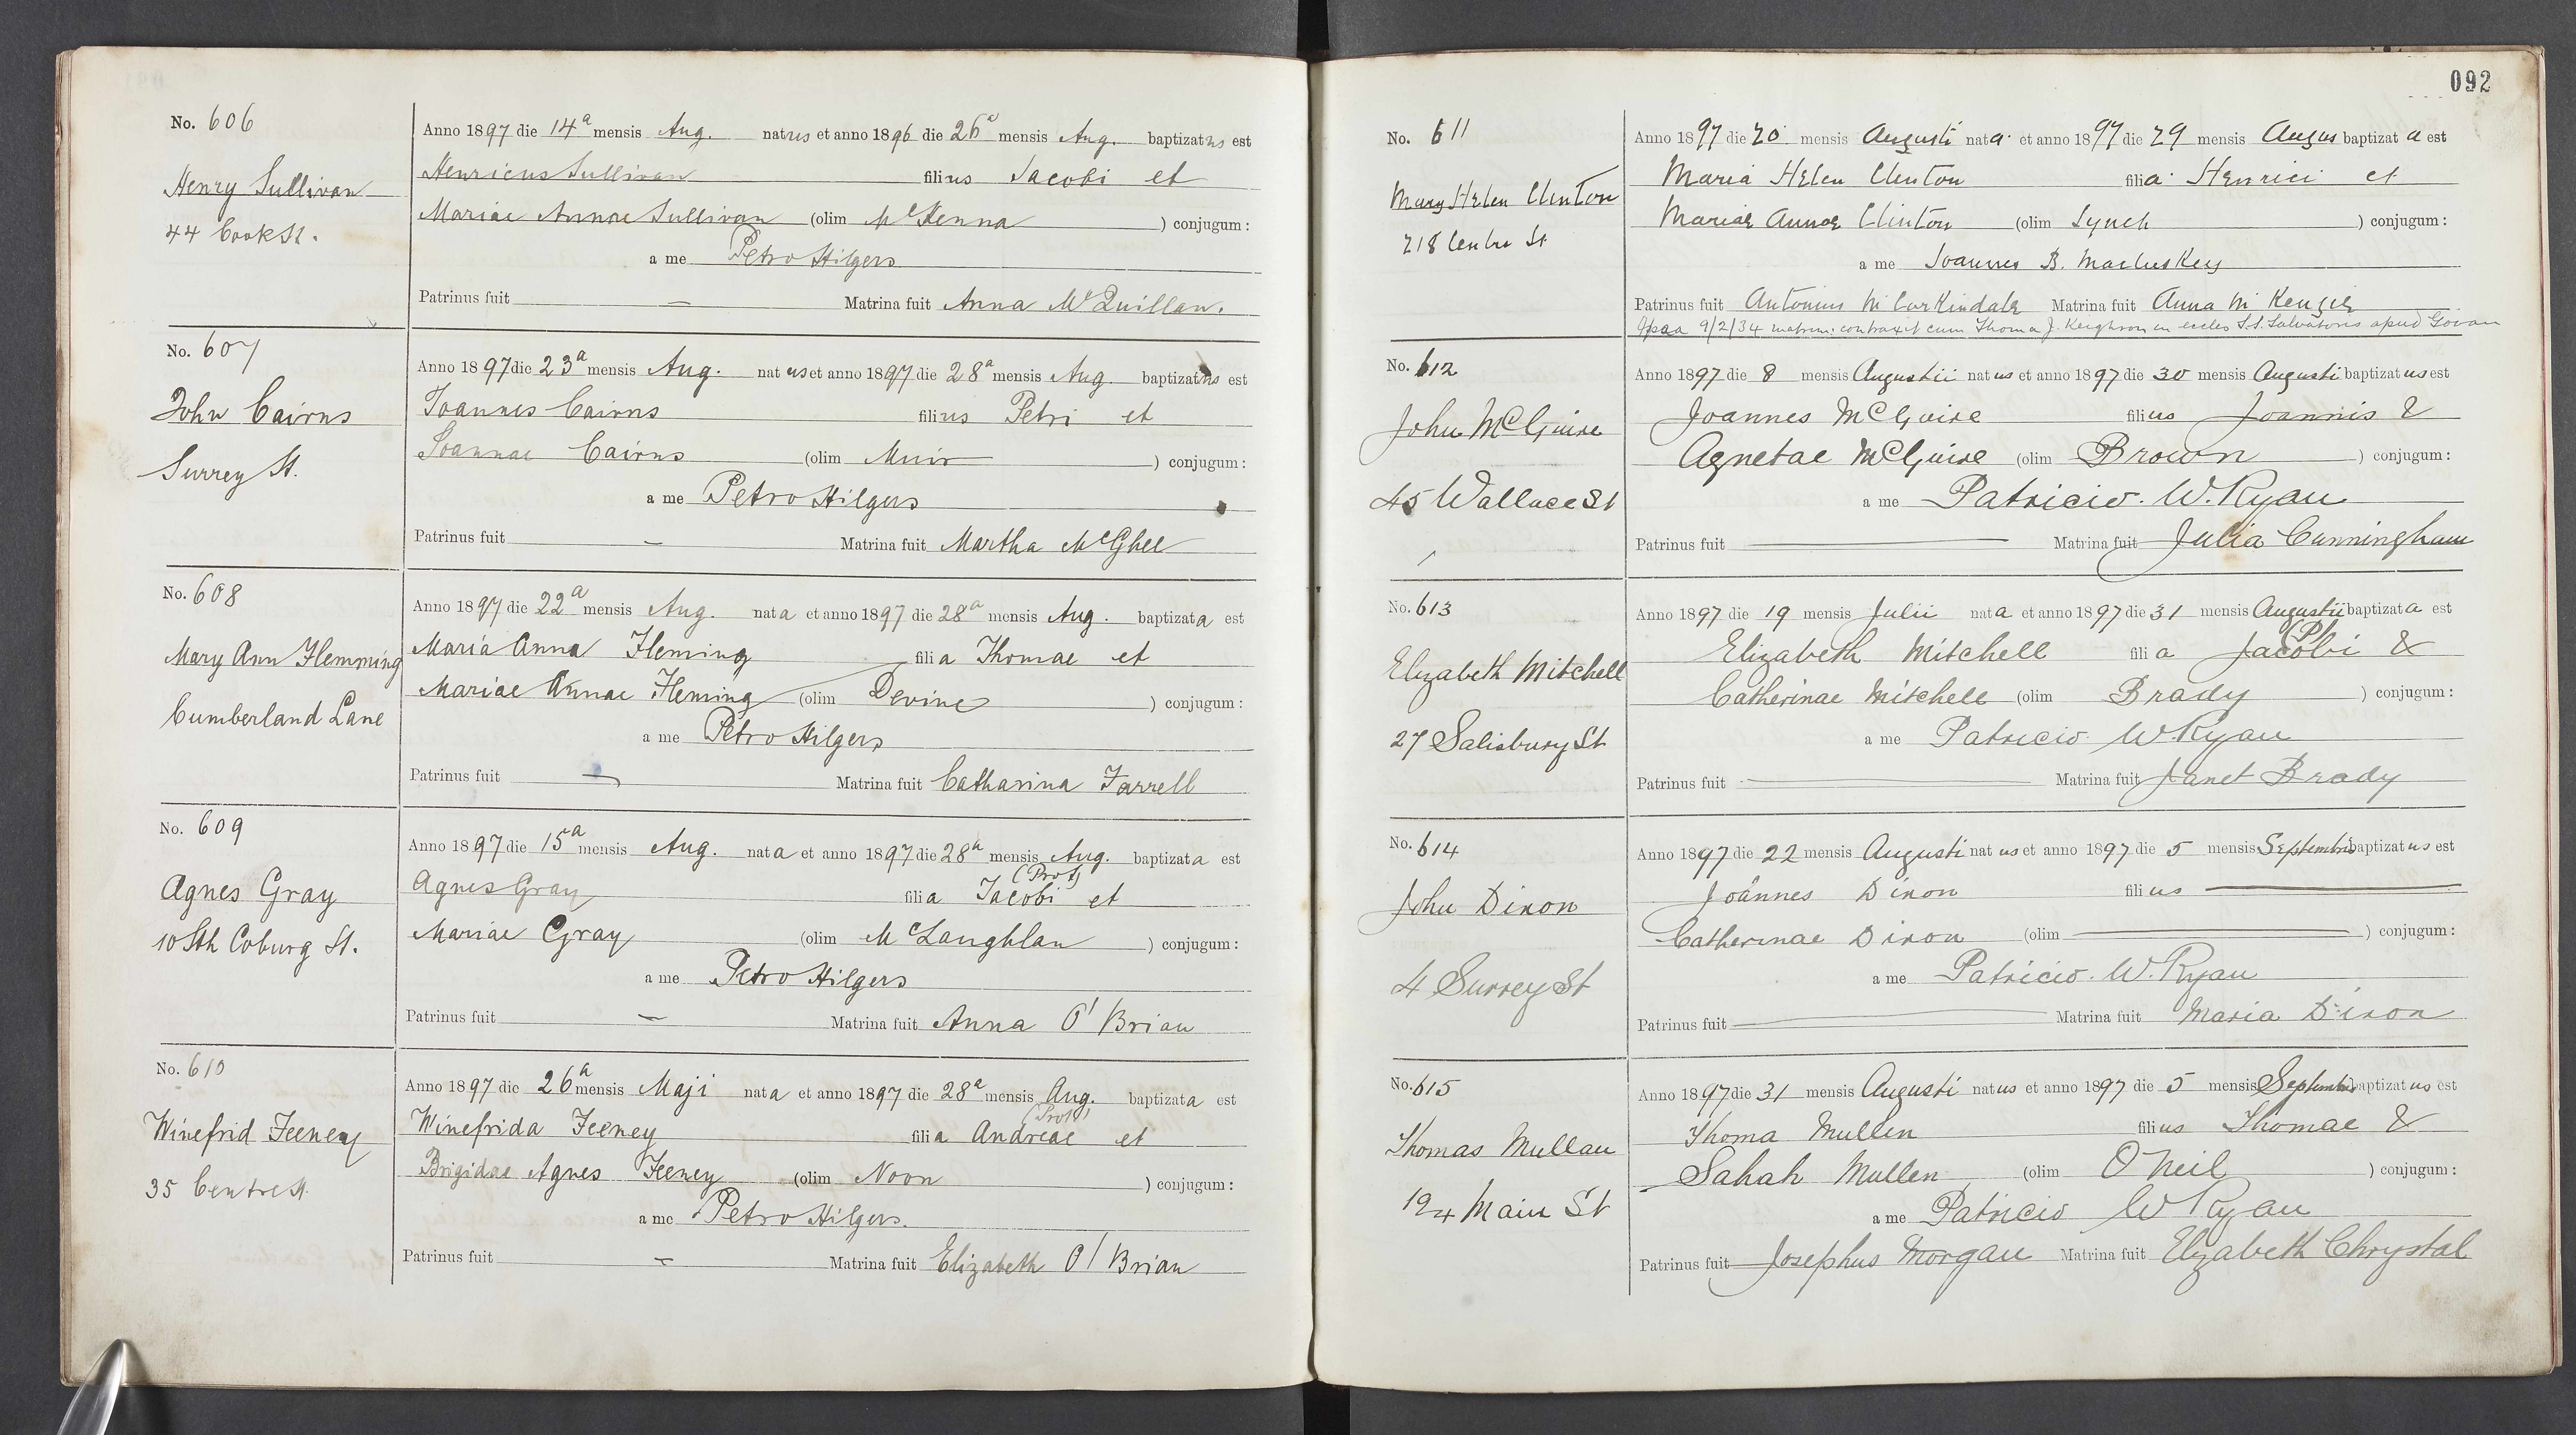 No. 606
Henry Sullivan
44 Cook St.
Anno 1897 die 14a mensis Aug. natus et anno 1896 die 26a mensis Aug. baptizatus est
Henricus Sullivan filius Jacobi et
Mariae Annae Sullivan (olim McKenna ) conjugum:
a me Petro Hilgers
Patrinus fuit — Matrina fuit Anna McQuillan.
No. 607
John Cairns
Surrey St.
Anno 1897 die 23a mensis Aug. natus et anno 1897 die 28a mensis Aug. baptizatus est
Joannes Cairns filius Petri et
Joannae Cairns (olim Muir ) conjugum:
a me Petro Hilgers
Patrinus fuit — Matrina fuit Martha McGhee
No. 608
Mary Ann Flemming
Cumberland Lane
Anno 1897 die 22a mensis Aug. nata et anno 1897 die 28a mensis Aug. baptizata est
Maria Anna Fleming filia Thomae et
Mariae Annae Fleming (olim Devine ) conjugum:
a me Petro Hilgers
Patrinus fuit — Matrina fuit Catharina Farrell
No. 609
Agnes Gray
10 Sth Coburg St.
Anno 1897 die 15a mensis Aug. nata et anno 1897 die 28a mensis Aug. baptizata est
(Prot)
Agnes Gray filia Jacobi et
Mariae Gray (olim McLaughlan ) conjugum:
a me Petro Hilgers
Patrinus fuit — Matrina fuit Anna O'Brian
No. 610
Winefrid Feeney
35 Centre St.
Anno 1897 die 26a mensis Maji nata et anno 1897 die 28a mensis Aug. baptizata est
(Prot)
Winefrida Feeney filia Andreae et
Brigidae Agnes Feeney (olim Noon ) conjugum:
a me Petro Hilgers.
Patrinus fuit — Matrina fuit Elizabeth O'Brian
092
No. 611
Mary Helen Clinton
218 Centre St
Anno 1897 die 20 mensis Augusti nata et anno 1897 die 29 mensis Augus baptizata est
Maria Helen Clinton filia Henrici et
Mariae Annae Clinton (olim Lynch ) conjugum:
a me Joannes B. MacLuskey
Patrinus fuit Antonius McCorkindale Matrina fuit Anna McKenzie
Ipsa 9/2/34 matrim: contraxit cum Thoma J. Keighron in eccles S.S. Salvatoris apud Govan
No. 612
John McGuire
45 Wallace St
Anno 1897 die 8 mensis Augustii natus et anno 1897 die 30 mensis Augusti baptizatus est
Joannes McGuire filius Joannis &
Agnetae McGuire (olim Brown ) conjugum:
a me Patricio. W. Ryan
Patrinus fuit — Matrina fuit Julia Cunningham
No. 613
Elizabeth Mitchell
27 Salisbury St
Anno 1897 die 19 mensis Julii nata et anno 1897 die 31 mensis Augustii baptizata est
(P)
Elizabeth Mitchell filia Jacobi &
Catherinae Mitchell (olim Brady ) conjugum:
a me Patricio. W. Ryan
Patrinus fuit — Matrina fuit Janet Brady
No. 614
John Dixon
4 Surrey St
Anno 1897 die 22 mensis Augusti natus et anno 1897 die 5 mensis Septembris baptizatus est
Joannes Dixon filius —
Catherinae Dixon (olim — ) conjugum:
a me Patricio. W. Ryan
Patrinus fuit — Matrina fuit Maria Dixon
No. 615
Thomas Mullan
124 Main St
Anno 1897 die 31 mensis Augusti natus et anno 1897 die 5 mensis Septembris baptizatus est
Thoma Mullen filius Thomae &
Sahah Mullen (olim O'Neil ) conjugum:
a me Patricio W Ryan
Patrinus fuit Josephus Morgan Matrina fuit Elizabeth Chrystal